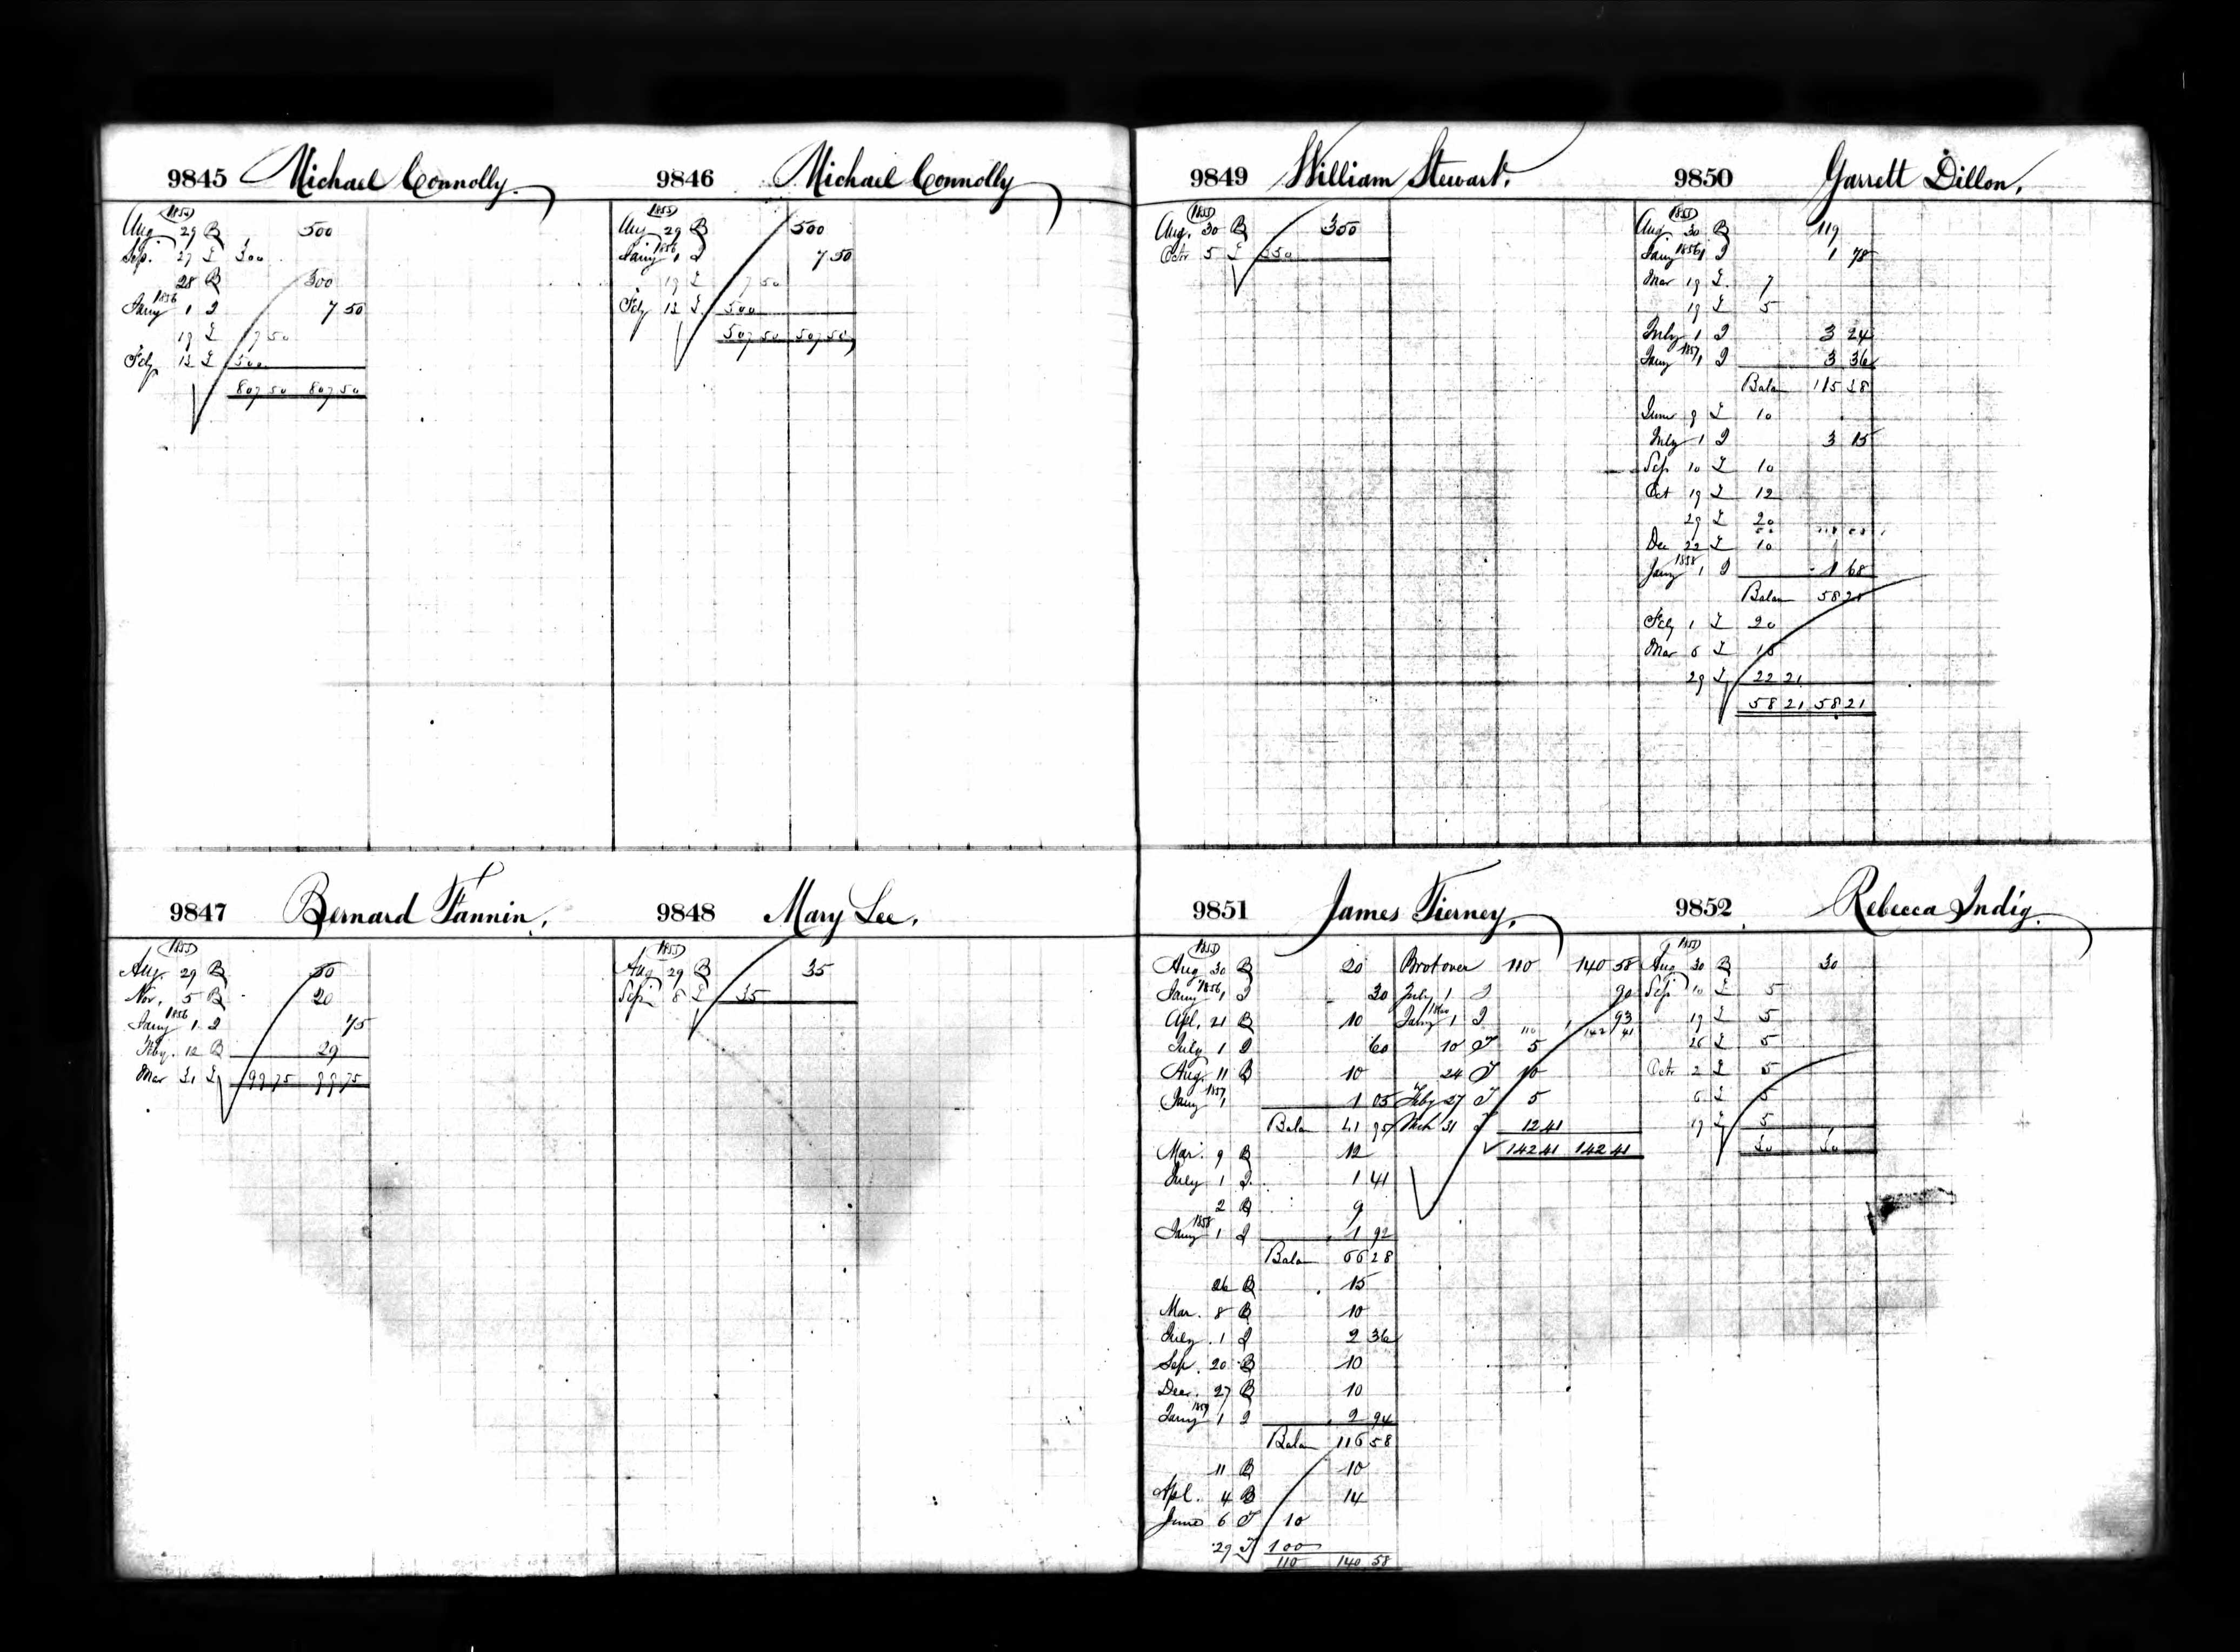 9845 Michael Connolly.
1855
Aug 29 B 500
Sep. 27 £ 300
28 B 300
1856
Jany 1 I 7 50
19 £ 7 50
Feby 12 £ 500
807 50 807 50
9846 Michael Connolly
1855
Aug 29 B 500
1856
Jany 1 I 7 50
19 £ 7 50
Feby 12 £ 500
507 50 507 50
9847 Bernard Fannin.
1855
Aug. 29 B 50
Nov. 5 B 20
1856
Jany 1 I 75
Feby. 12 B 29
Mar 31 £ 99 75 99 75
9848 Mary Lee.
1855
Aug 29 B 35
Sep. 8 £ 35
9849 William Stewart.
1855
Aug. 30 B 350
Octr 5 £ 350
9850 Garrett Dillon.
1855
Aug 30 B 119
Jany 1856 1 I 1 78
Mar 19 £ 7
19 £ 5
July 1 I 3 24
Jany 1857 1 I 3 36
Balan 115 38
June 9 £ 10
July 1 I 3 15
Sep 10 £ 10
Oct 19 £ 12
29 £ 20
Dec 22 £ 10
1858
Jany 1 I 1 68
Balan 58 21
Feby 1 £ 20
Mar 6 £ 16
29 £ 22 21
58 21 58 21
9851 James Tierney.
1855
Aug 30 B 20
Jany 1856 1 I 30
Apl. 21 B 10
July 1 I 60
Aug. 11 B 10
Jany 1857 1 1 05
Balan 41 95
Mar. 9 B 12
July 1 I 1 41
2 B 9
1858
Jany 1 I 1 92
Balan 66 28
26 B 15
Mar. 8 B 10
July 1 I 2 36
Sep 20 B 10
Decr. 27 B 10
Jany 1859 1 I 2 94
Balan 116 58
11 B 10
Apl. 4 B 14
June 6 T 10
29 T 100
110 140 58
Brot over 110 140 58
July 1 I 90
Jany 1860 1 I 93
110 142 41
10 T 5
24 T 10
Feby 27 T 5
Mch 31 T 12 41
142 41 142 41
9852 Rebecca Indig.
1855
Aug 30 B 30
Sep 10 £ 5
19 £ 5
26 £ 5
Octr 2 £ 5
6 £ 5
19 £ 5
30 30